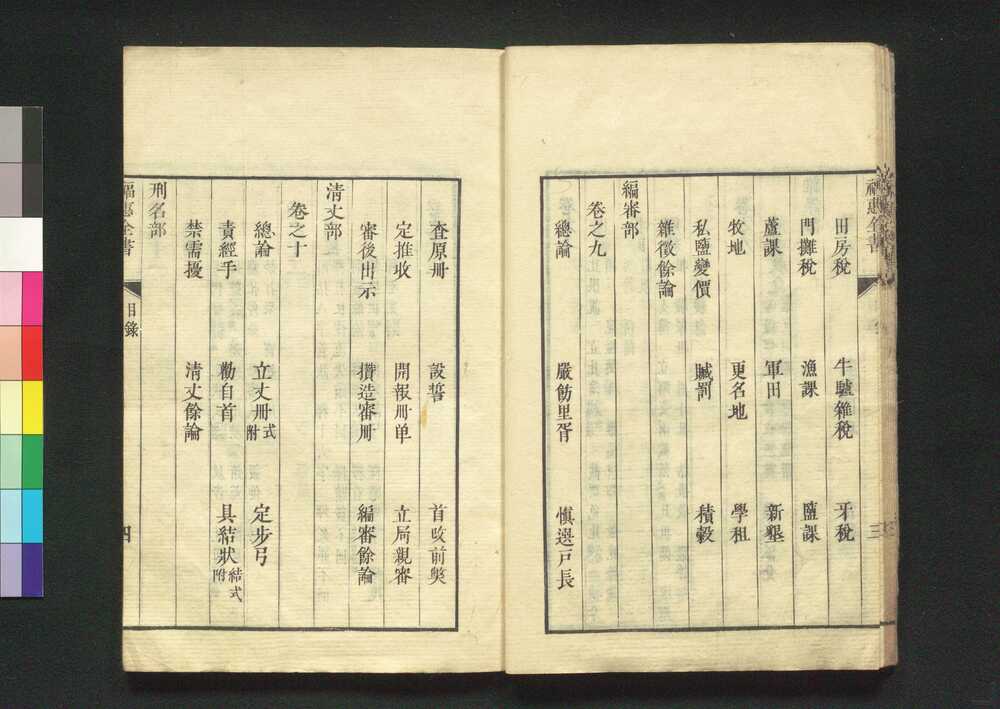 福惠全書
三
田房稅　牛驢雜稅　牙稅
門攤稅　漁課　鹽課
蘆課　軍田　新墾
牧地　更名地　學租
私鹽變價　贓罰　積穀
雜徵餘論
編審部
卷之九
總論　嚴飭里胥　慎選戶長
查原冊　設誓　首攺前獘
定推收　開報冊单　立局親審
審後出示　攢造審冊　編審餘論
清丈部
卷之十
總論　立丈冊附式　定步弓
責經手　勸自首　具結狀附結式
禁需擾　清丈餘論
刑名部
福惠全書
目錄
四